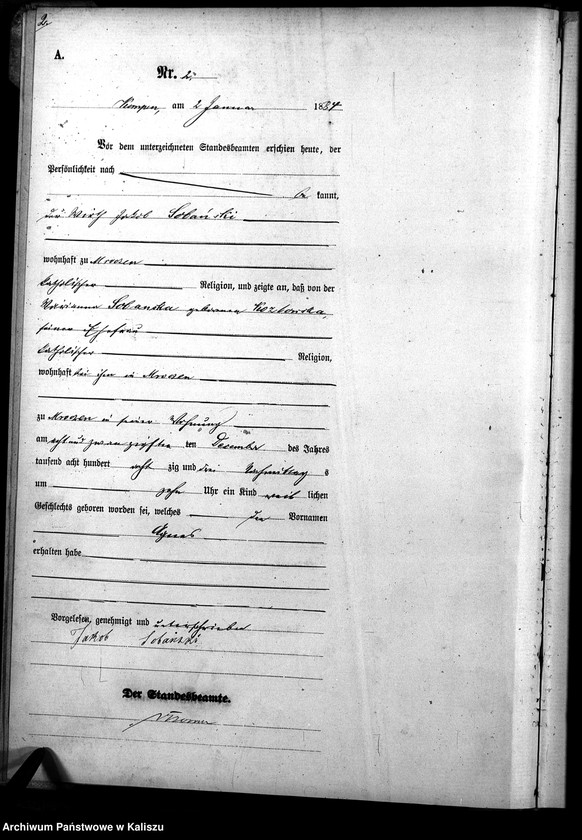 2.
A.
Nr. 2.
Kempen, am 2 Januar 1884
Vor dem unterzeichneten Standesbeamten erschien heute, der
Persönlichkeit nach
be kannt,
der Wirth Jakob Sobański
wohnhaft zu Mroczen
katholischer Religion, und zeigte an, daß von der
Marianna Sobanska geborenen Kozlowska,
seiner Ehefrau
katholischer Religion,
wohnhaft bei ihm in Mroczen
zu Mroczen in seiner Wohnung
am acht und zwanzigsten ten Dezember des Jahres
tausend acht hundert acht zig und drei Vormittag s
um zehn Uhr ein Kind weib lichen
Geschlechts geboren worden sei, welches den Vornamen
Agnes
erhalten habe
Vorgelesen, genehmigt und unterschrieben
Jakob Sobański
Der Standesbeamte.
Archiwum Państwowe w Kaliszu